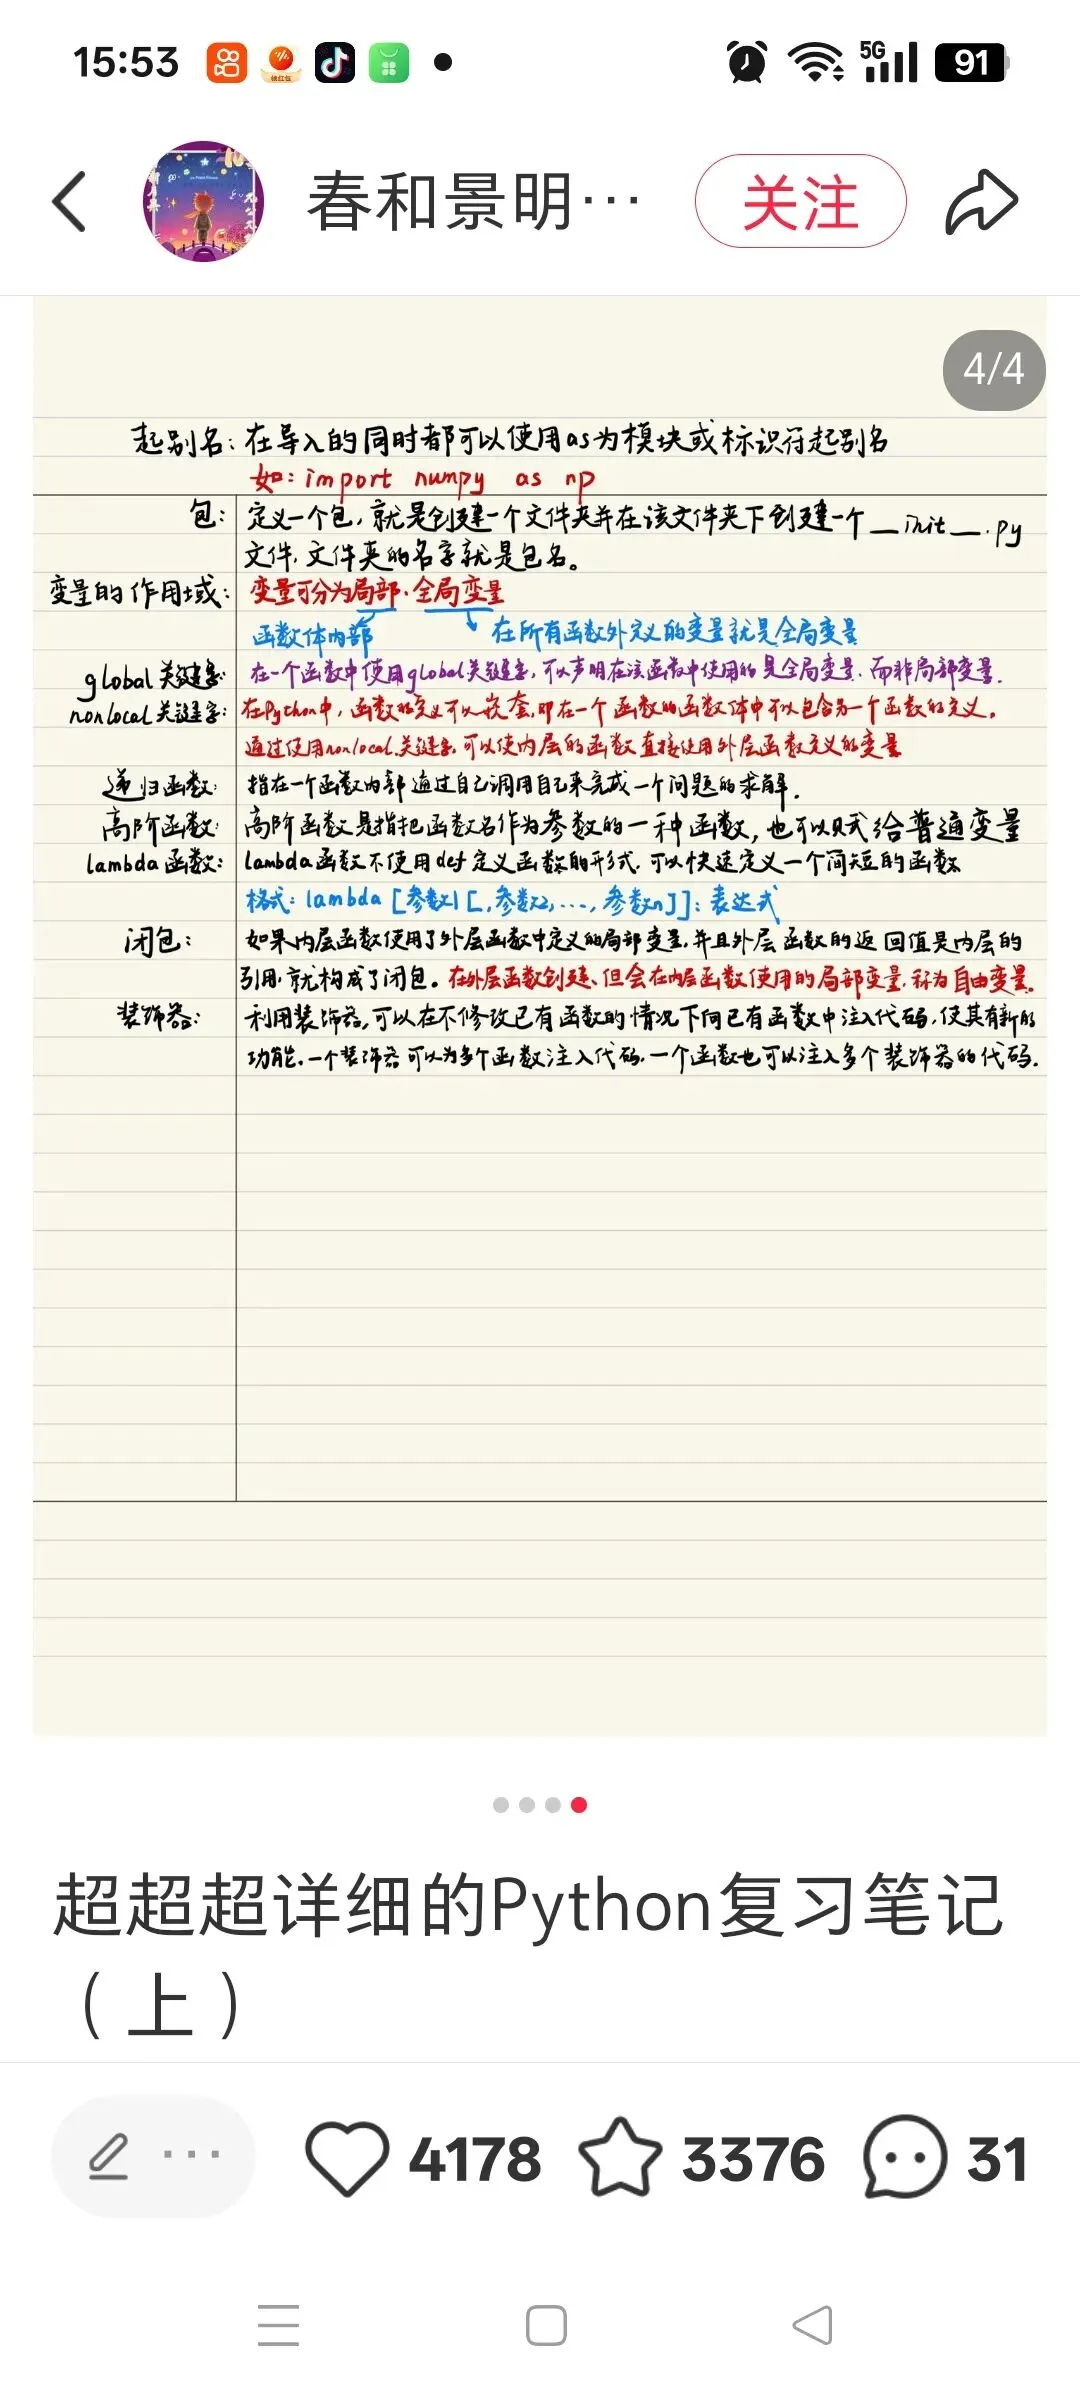 15:53
5G
91
春和景明…
关注
4/4
起别名：在导入的同时都可以使用as为模块或标识符起别名
如：import numpy as np
包：定义一个包，就是创建一个文件夹并在该文件夹下创建一个__init__.py
文件，文件夹的名字就是包名。
变量的作用域：变量可分为局部、全局变量
函数体内部 在所有函数外定义的变量就是全局变量
global关键字：在一个函数中使用global关键字，可以声明在该函数中使用的是全局变量，而非局部变量．
nonlocal关键字：在Python中，函数的定义可以嵌套，即在一个函数的函数体中可以包含另一个函数的定义．
通过使用nonlocal关键字，可以使内层的函数直接使用外层函数定义的变量
递归函数：指在一个函数内部通过自己调用自己来完成一个问题的求解．
高阶函数：高阶函数是指把函数名作为参数的一种函数，也可以赋给普通变量
lambda函数：lambda函数不使用def定义函数的形式，可以快速定义一个简短的函数
格式：lambda [参数1[,参数2,...,参数n]]：表达式
闭包：如果内层函数使用了外层函数中定义的局部变量，并且外层函数的返回值是内层的
引用，就构成了闭包。在外层函数创建、但会在内层函数使用的局部变量，称为自由变量．
装饰器：利用装饰器，可以在不修改已有函数的情况下向已有函数中注入代码，使其有新的
功能．一个装饰器可以为多个函数注入代码，一个函数也可以注入多个装饰器的代码．
超超超详细的Python复习笔记
（上）
4178
3376
31